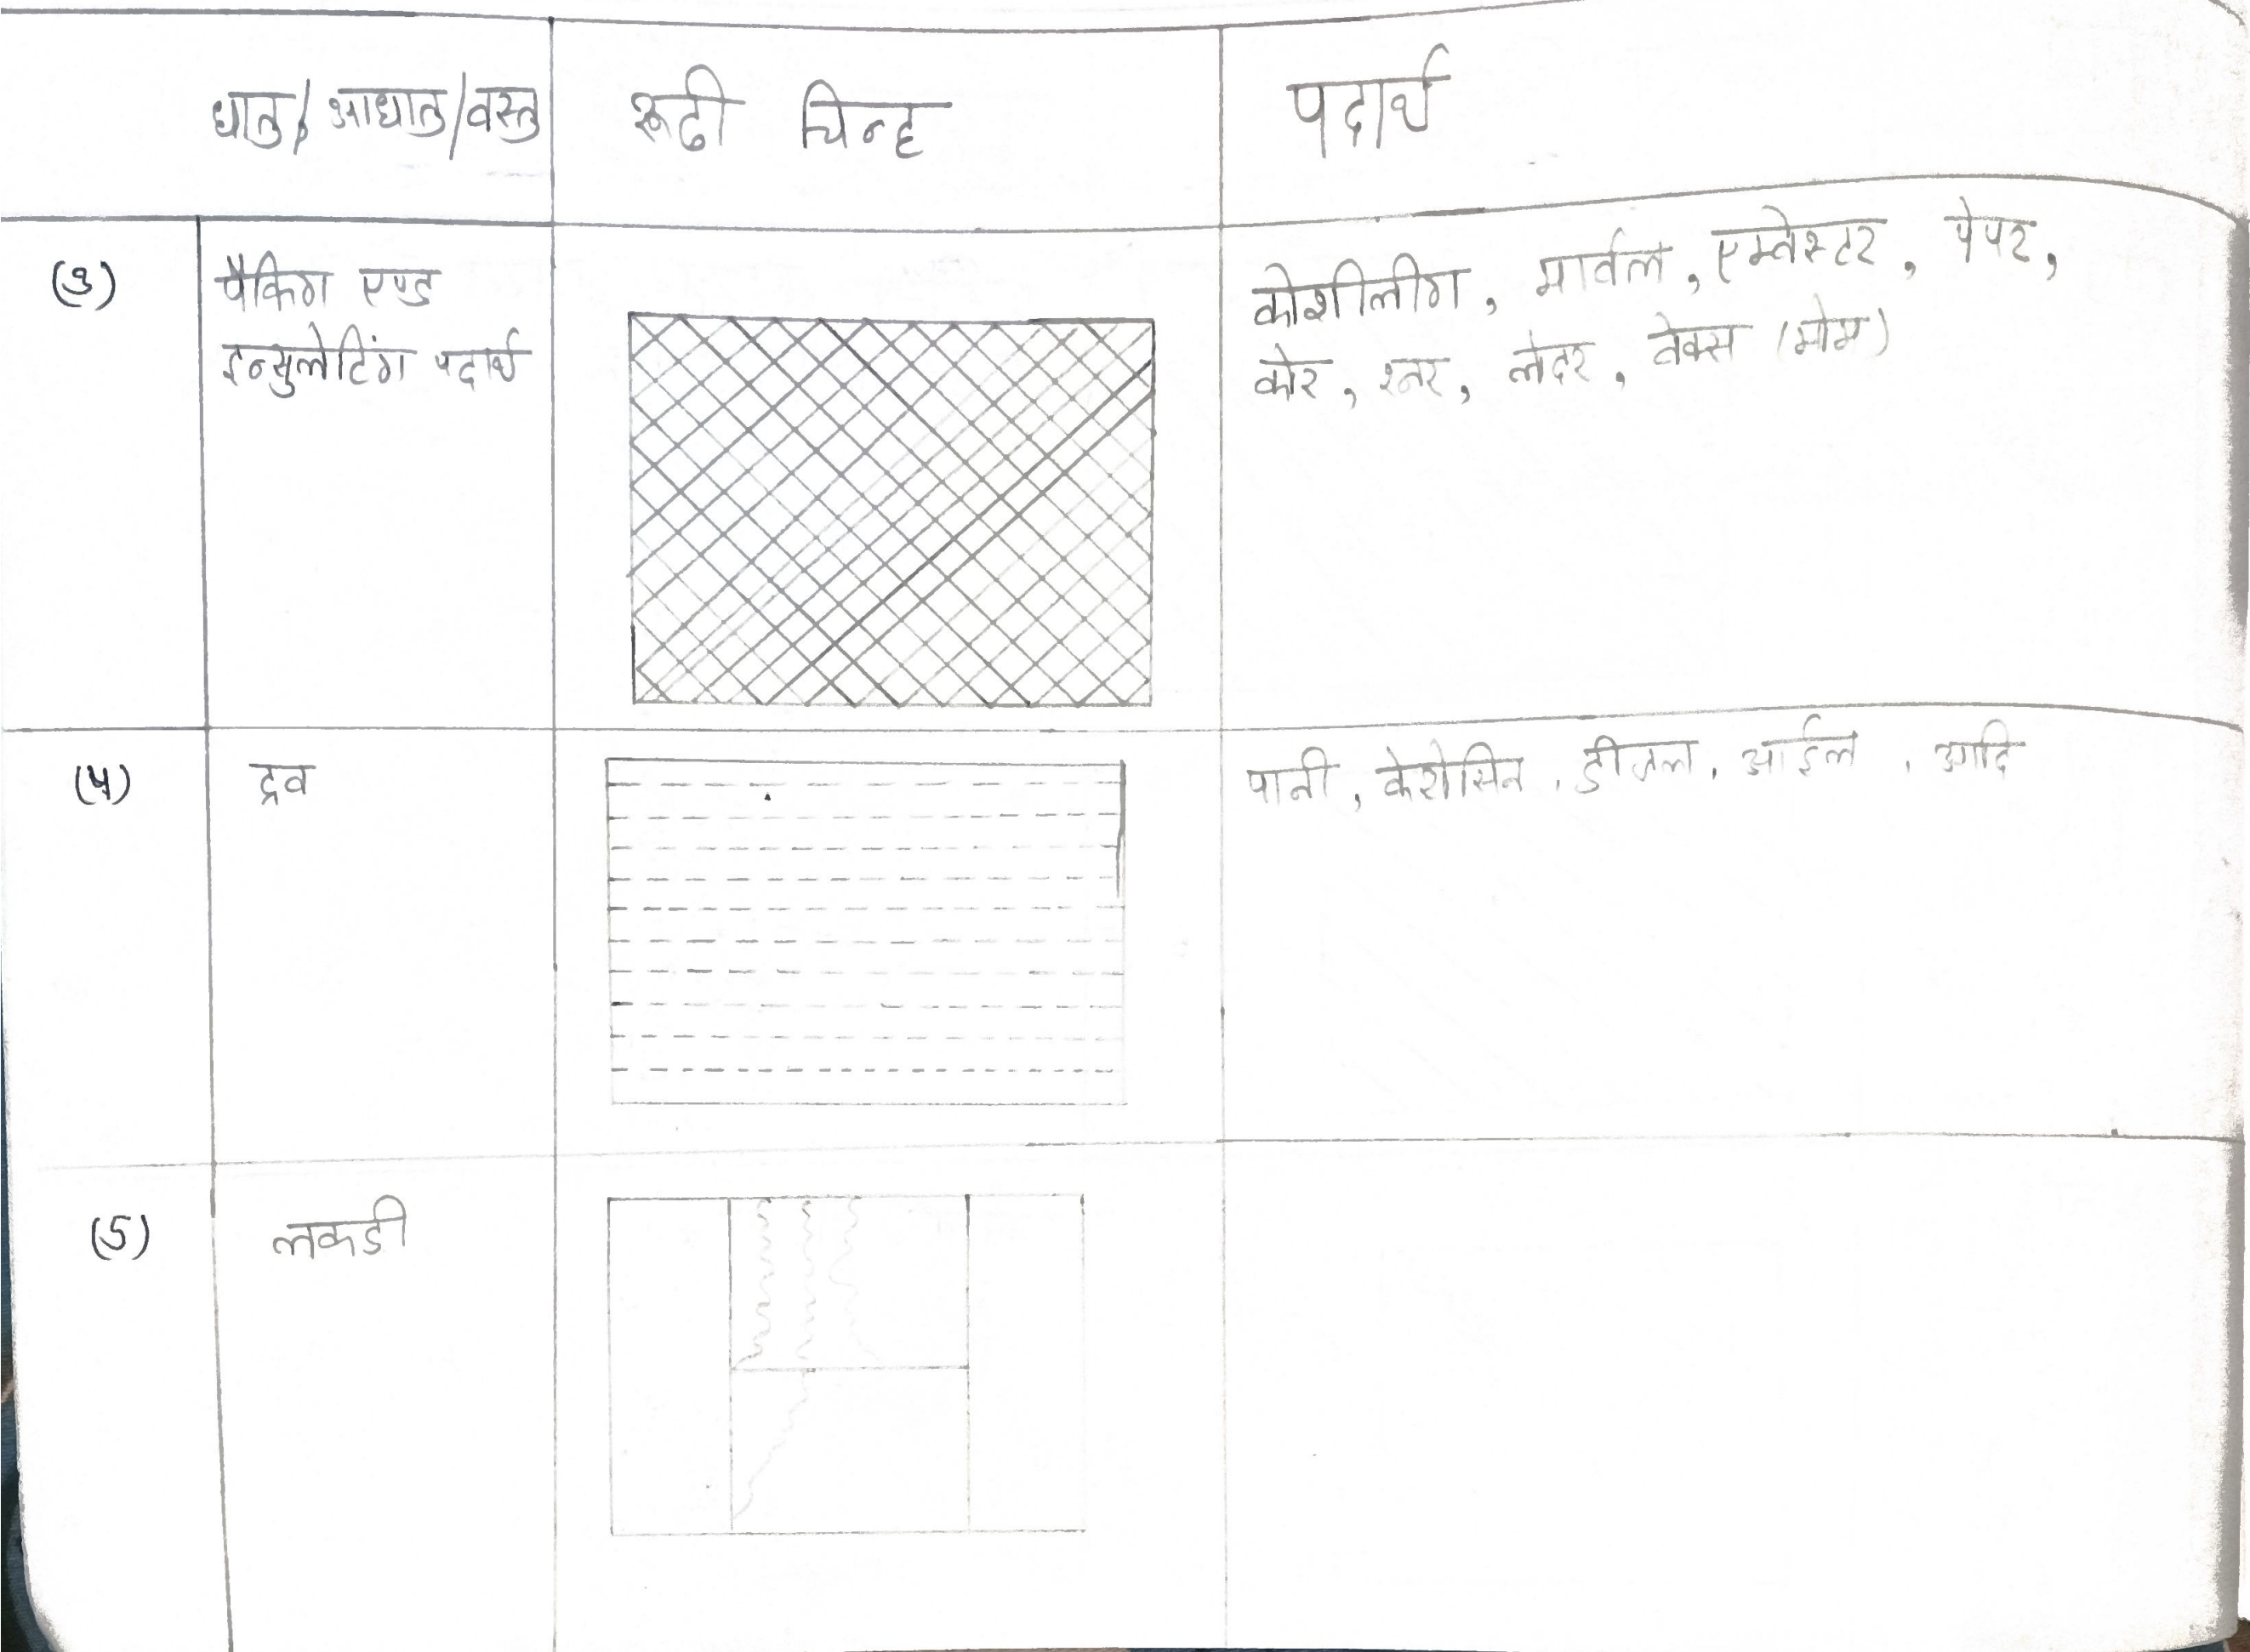 धातु/ आधातु/वस्तु
रूढी चिन्ह
पदार्थ
(3)
पैकिंग एण्ड
इन्सुलेटिंग पदार्थ
कोशीलीग, मार्वल, पेपर,
कोर, लेदर, वेक्स (मोम)
(4)
द्रव
पानी, केरोसिन, डीजल, आईल, आदि
(5)
लकडी